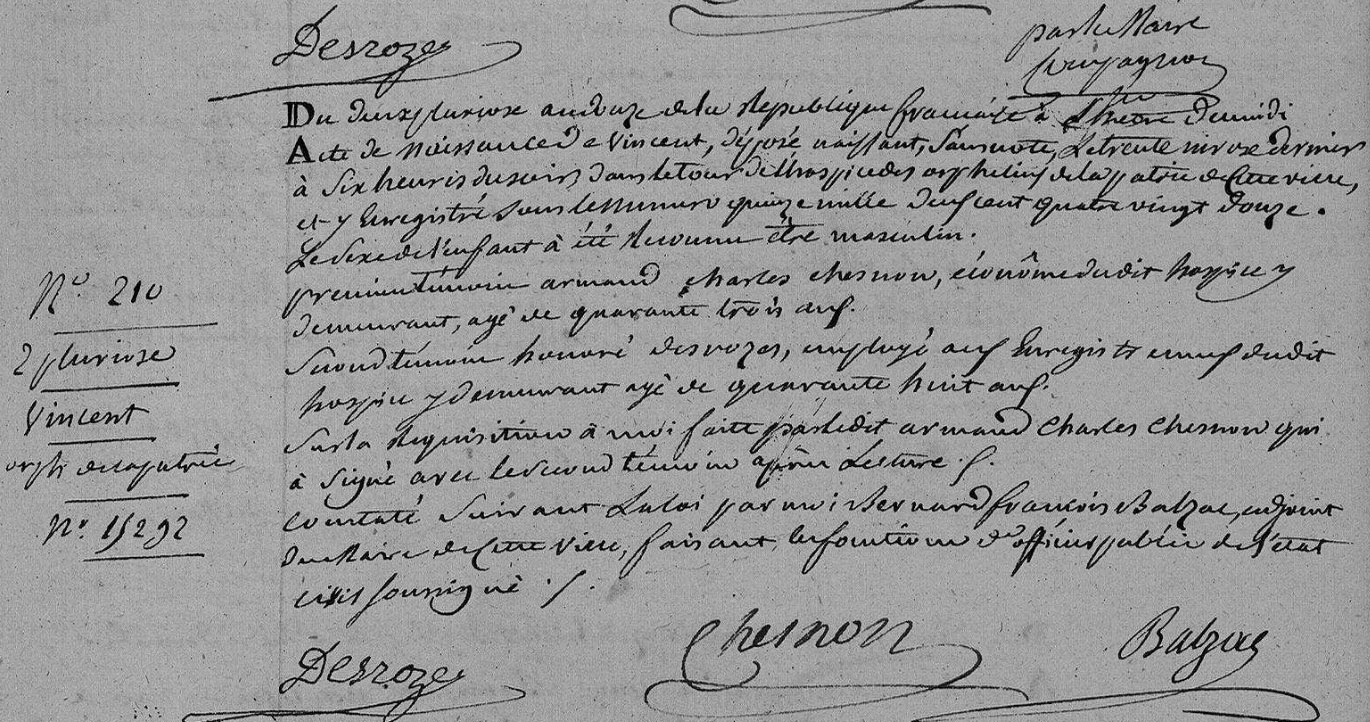 Desroze
par le Maire
Du deux pluviose an douze de la République française à heure de midi
Acte de Naissance de Vincent, déposé naissant, sans note, Le trente nivose dernier
à Six heures du soir, dans le tour de l'hospice des orphelins de la patrie de Cette ville,
et y Enregistré sous le Numero quinze mille deux cent quatre vingt douze.
Le Sexe de l'enfant à été Reconnu être masculin.
premier témoin armand charles chesnon, économe dudit hospice y
demeurant, agé de quarante trois ans.
Second témoin honoré desrozes, employé aux Enregistremens dudit
hospice y demeurant agé de quarante huit ans.
Sur la Requisition à moi faite par ledit armand Charles Chesnon qui
à Signé avec le Second témoin après Lecture ./.
Constaté Suivant La loi par moi Bernard françois Balzac, adjoint
du Maire de Cette Ville, faisant les fonctions d'officier public de l'état
civil soussigné ./.
N° 210
2 pluviose
Vincent
orph de la patrie
N° 15292
Chesnon
Balzac
Desroze